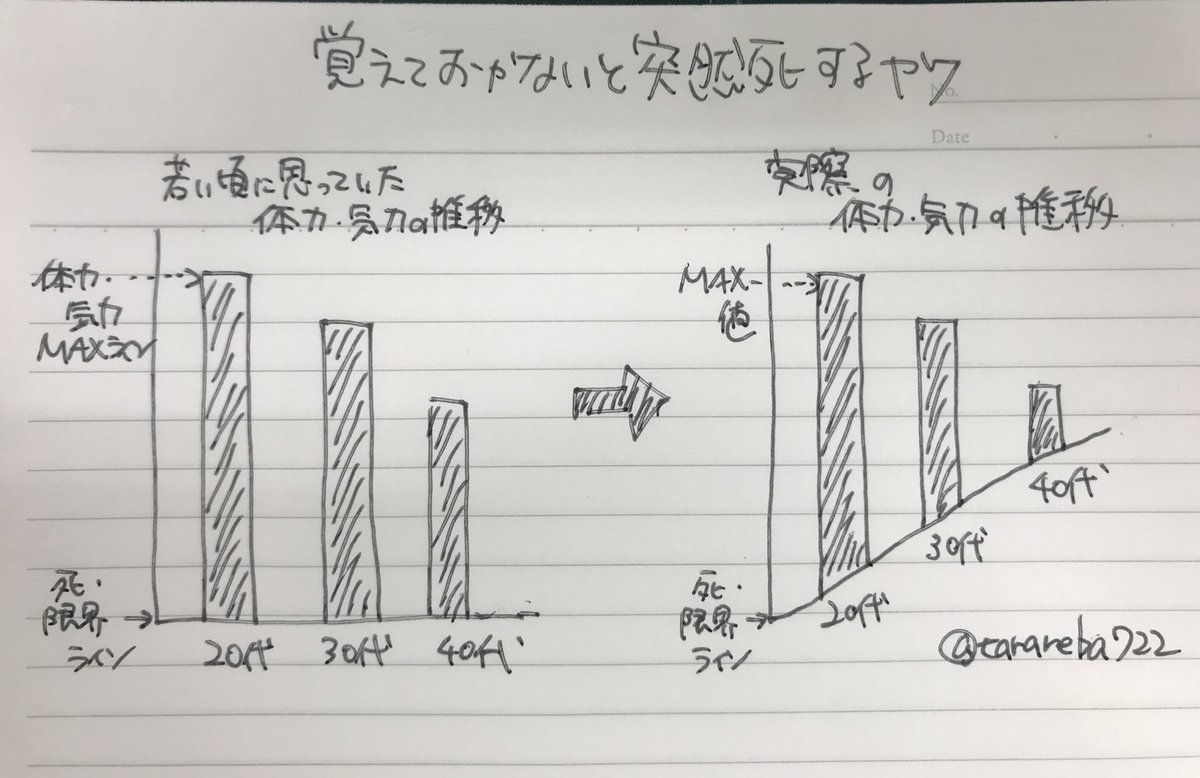 覚えておかないと突然死するヤツ
No.
Date
若い頃に思っていた
体力・気力の推移
体力・
気力
MAXライン
死・
限界
ライン
20代
30代
40代
実際の
体力・気力の推移
MAX
値
死・
限界
ライン
20代
30代
40代
@tarareba722